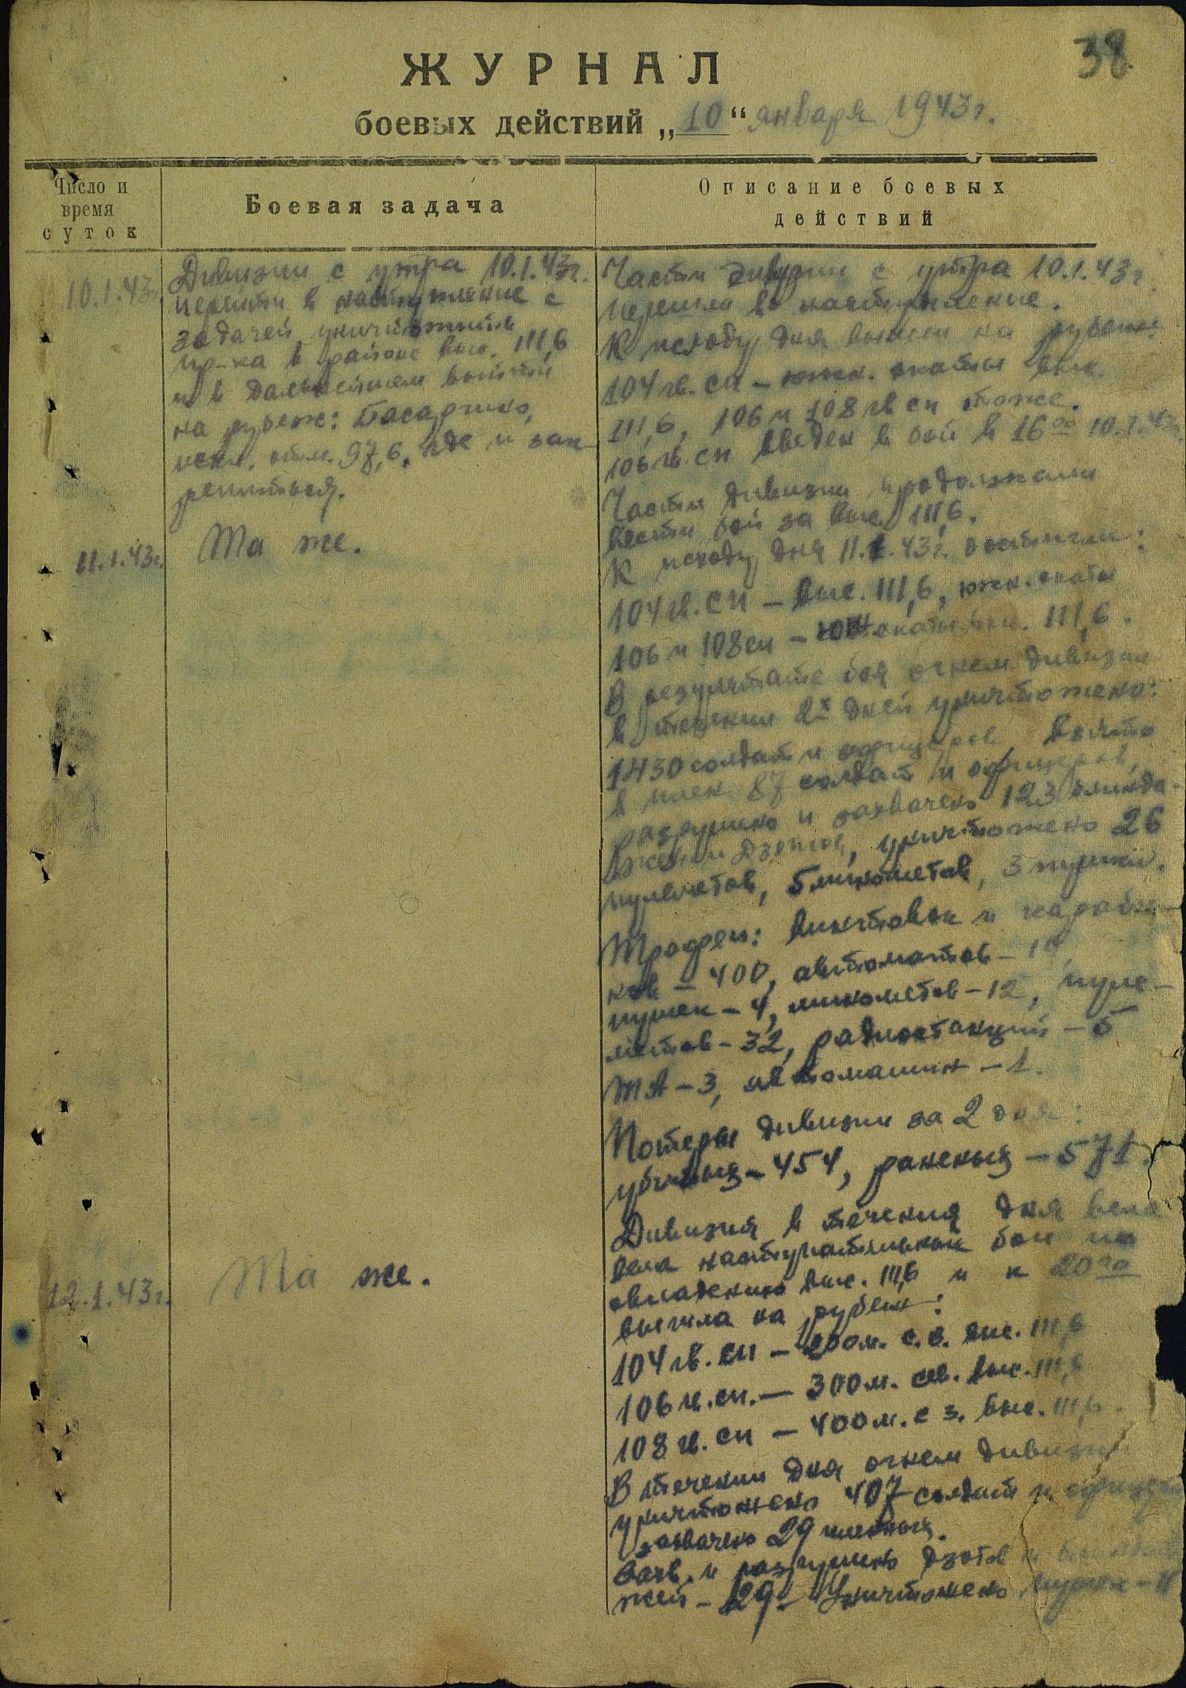 38
ЖУРНАЛ
боевых действий „10“ января 1943г.
Число и
время
суток
Боевая задача
Описание боевых
действий
10.1.43г.
Дивизии с утра 10.1.43г.
перейти в наступление с
задачей уничтожить
пр-ка в районе выс. 111,6
и в дальнейшем выйти
на рубеж: Басаргино,
искл. отм. 97,6, где и зак-
репиться.
Части дивизии с утра 10.1.43г.
перешли в наступление.
К исходу дня вышли на рубеж:
104 гв. сп – южн. скаты выс.
111,6, 106 и 108 гв сп тоже.
106 гв. сп введен в бой в 16 00 10.1.43г.
11.1.43г.
Та же.
Части дивизии продолжали
вести бой за выс. 111,6.
К исходу дня 11.1.43г. достигли:
104 гв. сп – выс. 111,6, южн. скаты
106 и 108 сп – скаты выс. 111,6.
В результате боя огнем дивизии
в течении 2х дней уничтожено:
1430 солдат и офицеров взято
в плен 87 солдат и офицеров,
разрушено и захвачено 123 блинда-
жей и дзотов, уничтожено 26
пулеметов, 5 минометов, 3 пушки.
Трофеи: винтовок и караби-
нов – 400, автоматов –
пушек – 4, минометов – 12, пуле-
метов – 32, радиостанций – 5
ТА – 3, автомашин – 1.
Потери дивизии за 2 дня:
убитых – 454, раненых – 571.
12.1.43г.
Та же.
Дивизия в течения дня вела
вела наступательный бой по
овладению выс. 111,6 и к 20 00
вышла на рубеж:
104 гв. сп – 200 м. с.в. выс. 111,6
106 гв. сп. – 300 м. сев. выс. 111,6
108 гв. сп – 400 м. с з. выс. 111,6.
В течении дня огнем дивизии
уничтожено 407 солдат и офицеров
захвачено 29 пленных.
Захв. и разрушено дзотов и блинда-
жей – 129. Уничтожено пушек –